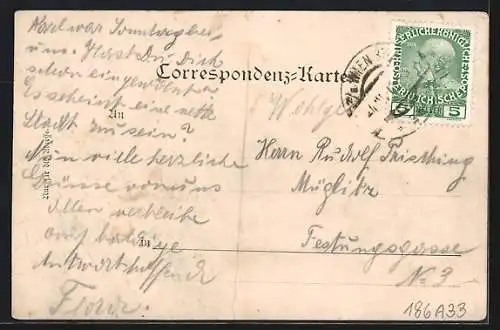 Karl war Sonntag bei
uns. Hast Du Dich
schon eingewöhnt?
Es scheint eine nette
Stadt zu sein?
Nun viele herzliche
Grüsse von uns
allen verbleibe
auf baldige
Antwort hoffend
Flora.
Correspondenz-Karte
An
in
Nur für die Adresse.
WIEN
5 5
Herrn Rudolf
Müglitz
Festungsgasse
No 3
186A33